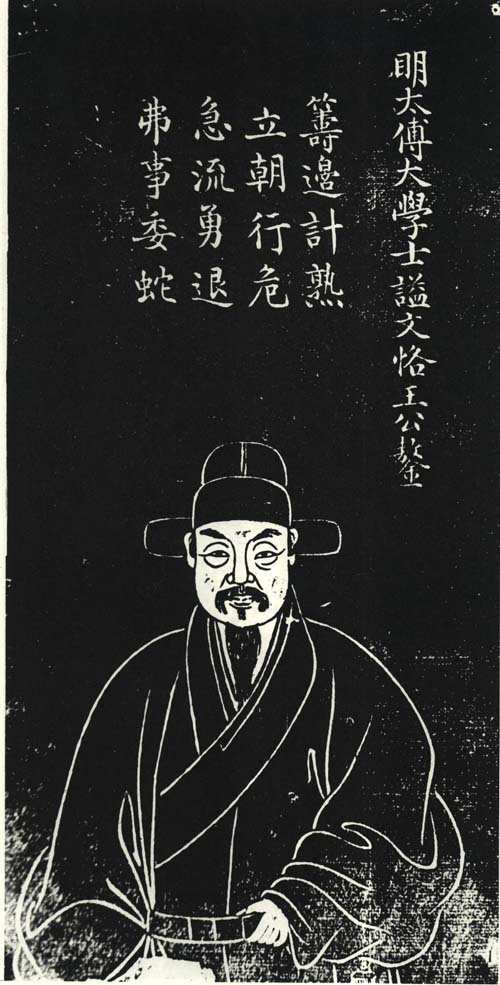 明太傅大學士謚文恪王公鏊
籌邊計熟
立朝行危
急流勇退
弗事委蛇